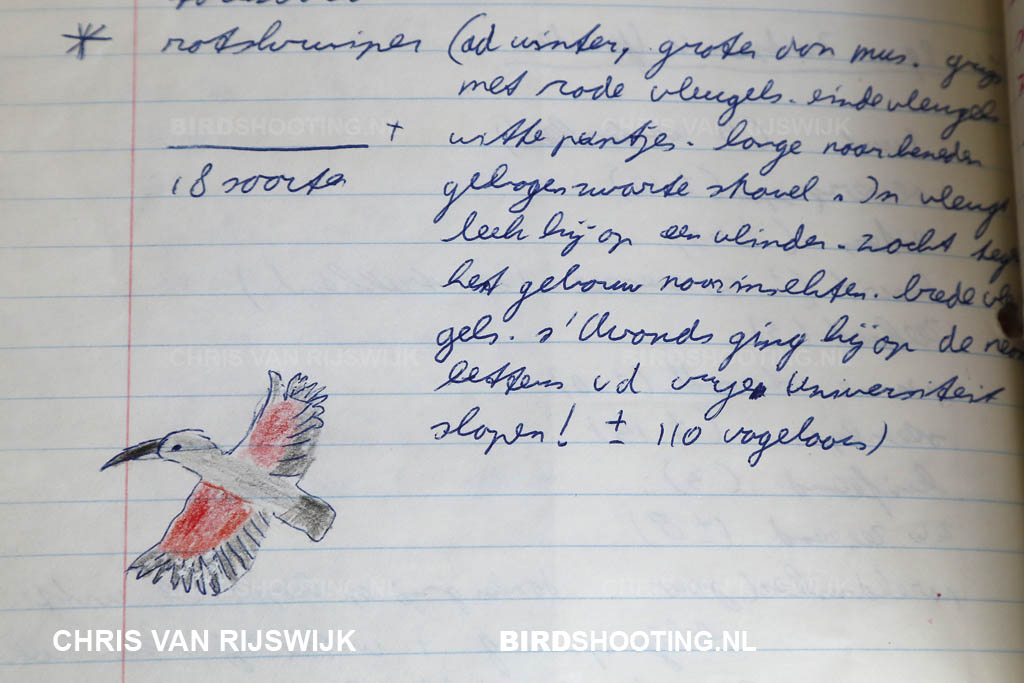 * rotskruiper (ad winter, groter dan mus. grijs
met rode vleugels. einde vleugels
+ witte puntjes. lange naar beneden
18 soorten gebogen zwarte snavel. In vleugel
leek hij op een vlinder. zocht
het gebouw naar insekten. brede vleu
gels. s'Avonds ging hij op de neon
letters vd vrije Universiteit
slapen! ± 110 vogelaars)
CHRIS VAN RIJSWIJK BIRDSHOOTING.NL
BIRDSHOOTING.NL CHRIS VAN RIJSWIJK
CHRIS VAN RIJSWIJK BIRDSHOOTING.NL
BIRDSHOOTING.NL CHRIS VAN RIJSWIJK